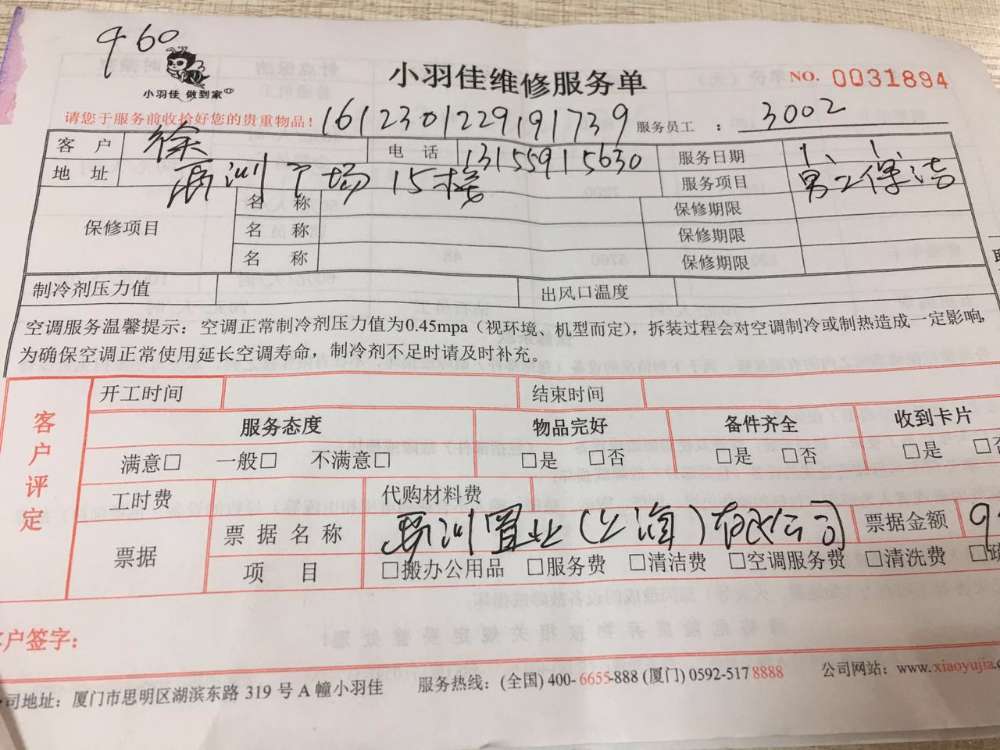 960
小羽佳 做到家
小羽佳维修服务单 NO. 0031894
请您于服务前收拾好您的贵重物品! 161230122919173​9 服务员工 : 3002
客 户 徐 电 话 13155915630 服务日期 1、1、
地 址 两洲广场 15楼 服务项目 男工保洁
保修项目 名 称 保修期限
名 称 保修期限
名 称 保修期限
制冷剂压力值 出风口温度
空调服务温馨提示：空调正常制冷剂压力值为0.45mpa（视环境、机型而定），拆装过程会对空调制冷或制热造成一定影响
为确保空调正常使用延长空调寿命，制冷剂不足时请及时补充。
客户评定 开工时间 结束时间
服务态度 物品完好 备件齐全 收到卡片
满意□ 一般□ 不满意□ □是 □否 □是 □否 □是 □否
工时费 代购材料费
票据 票据名称 两洲置业(上海)有限公司 票据金额 9
项 目 □搬办公用品 □服务费 □清洁费 □空调服务费 □清洗费
客户签字:
公司地址: 厦门市思明区湖滨东路 319 号 A 幢小羽佳 服务热线: (全国) 400-6655-888 (厦门) 0592-5178888 公司网站: www.xiaoyujia.